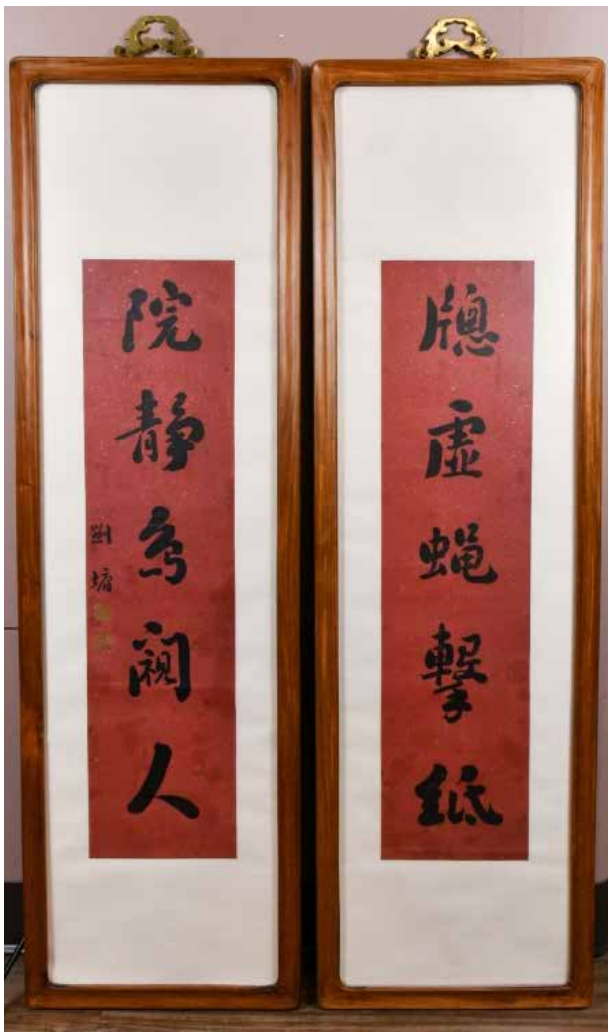 牕虛蠅擊紙
院静鳥闚人
劉墉